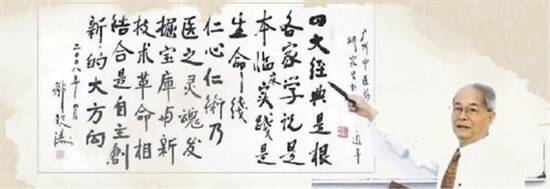 广州中医药
研究生
四大经典是根
各家学说是
本临床实践是
生命线
仁心仁术乃
医之灵魂发
掘宝库与新
技术革命相
结合是自主创
新的大方向
二〇〇八年
邓铁涛